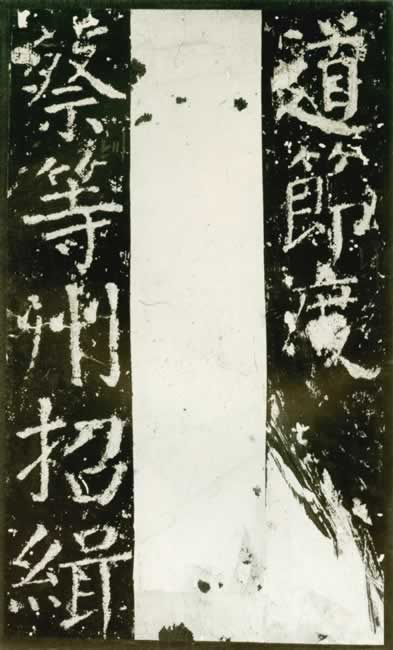 道節度
蔡等州招緝